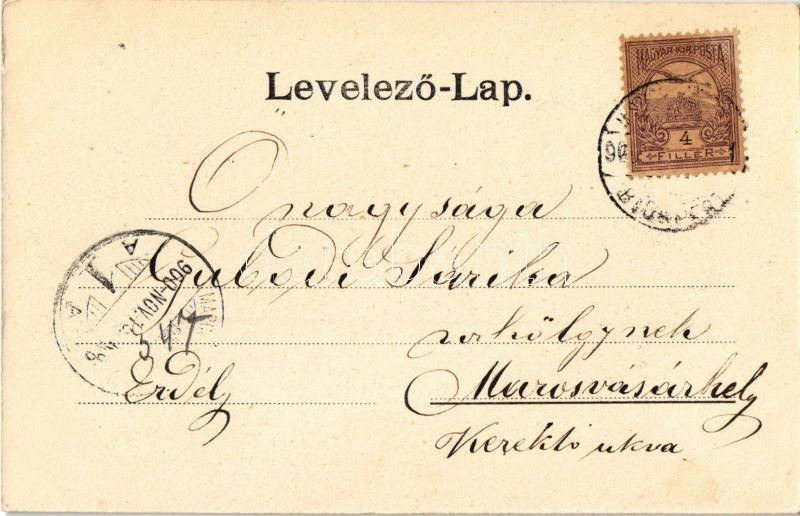 Levelező-Lap.
MAGYAR KIR. POSTA
4
FILLÉR
Onagysága
Gubodi Sárika
urhölgynek
Erdély
Marosvásárhely
Kerektó utcza
900-NOV.
A 1 A